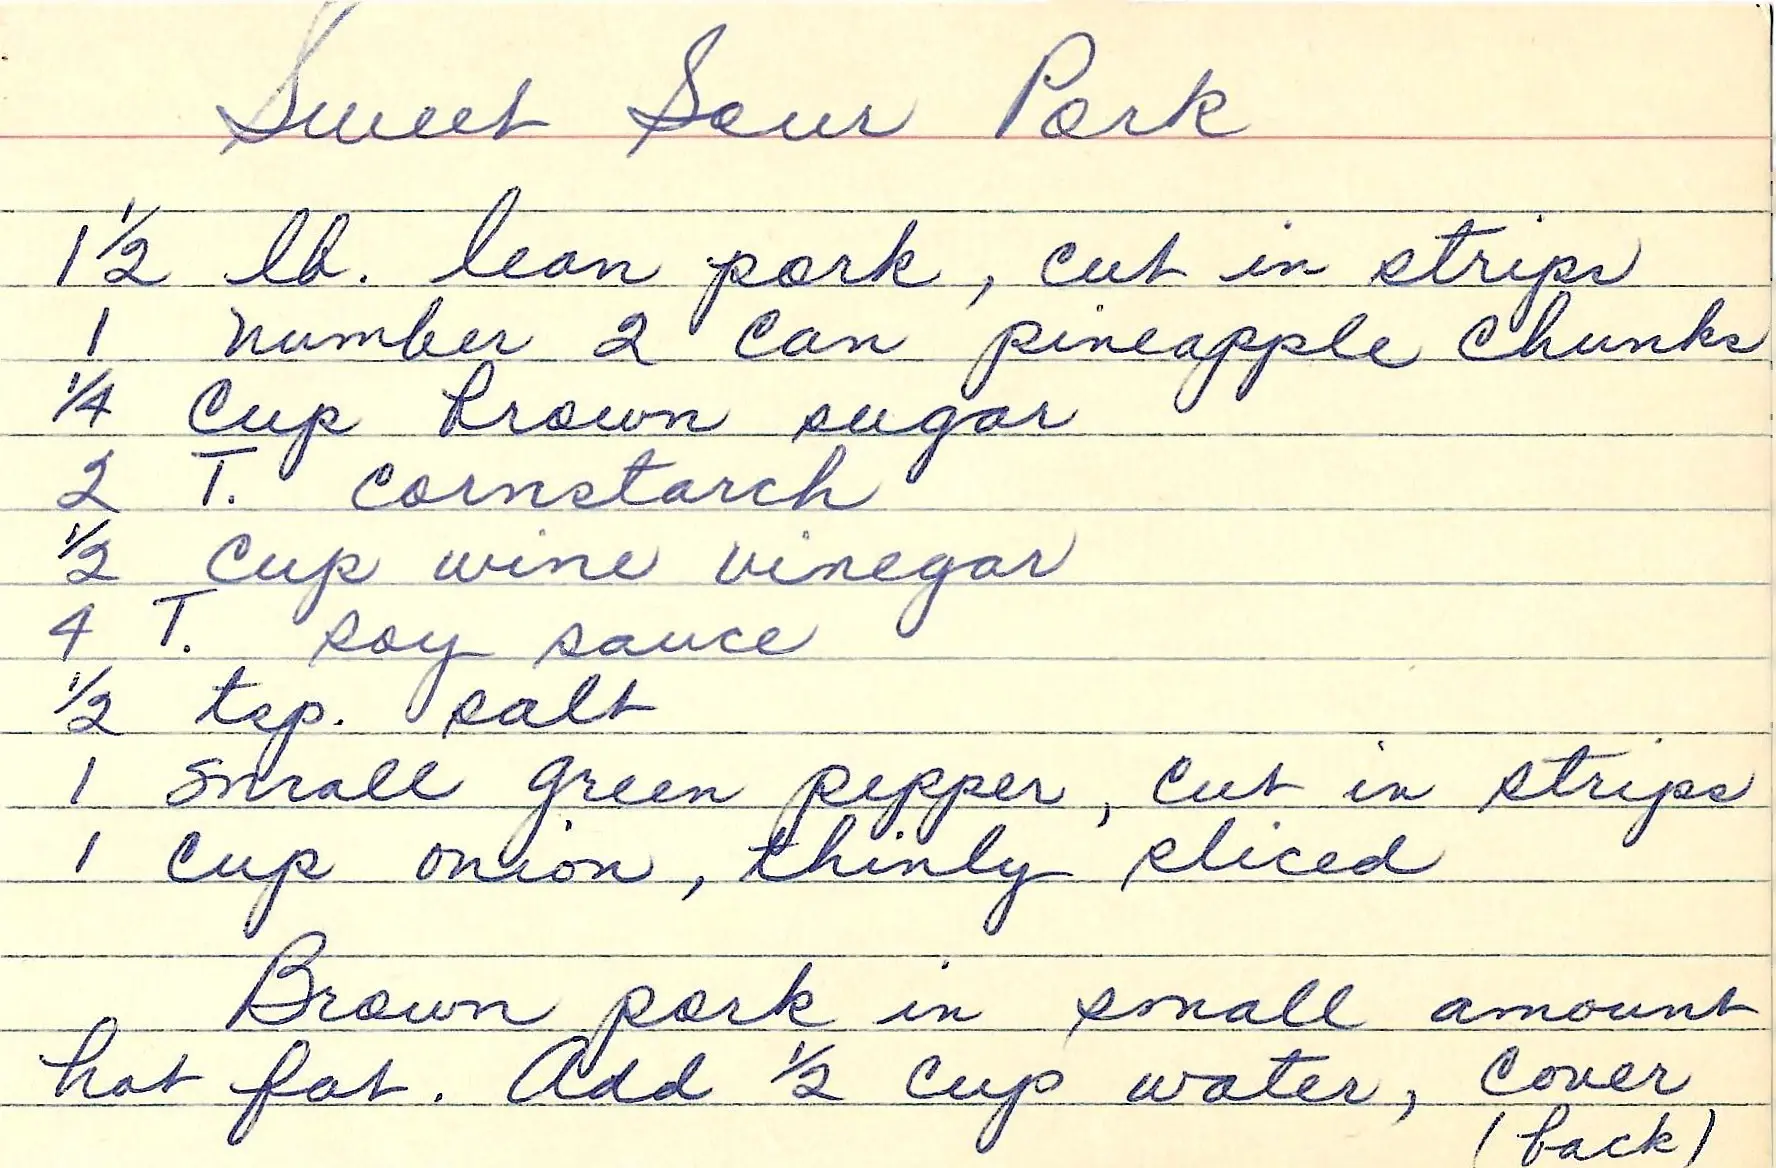 Sweet Sour Pork
1 1/2 lb. lean pork, cut in strips
1 number 2 can pineapple chunks
1/4 cup brown sugar
2 T. cornstarch
1/2 cup wine vinegar
4 T. soy sauce
1/2 tsp. salt
1 small green pepper, cut in strips
1 cup onion, thinly sliced
Brown pork in small amount
hot fat. Add 1/2 cup water, cover
(back)